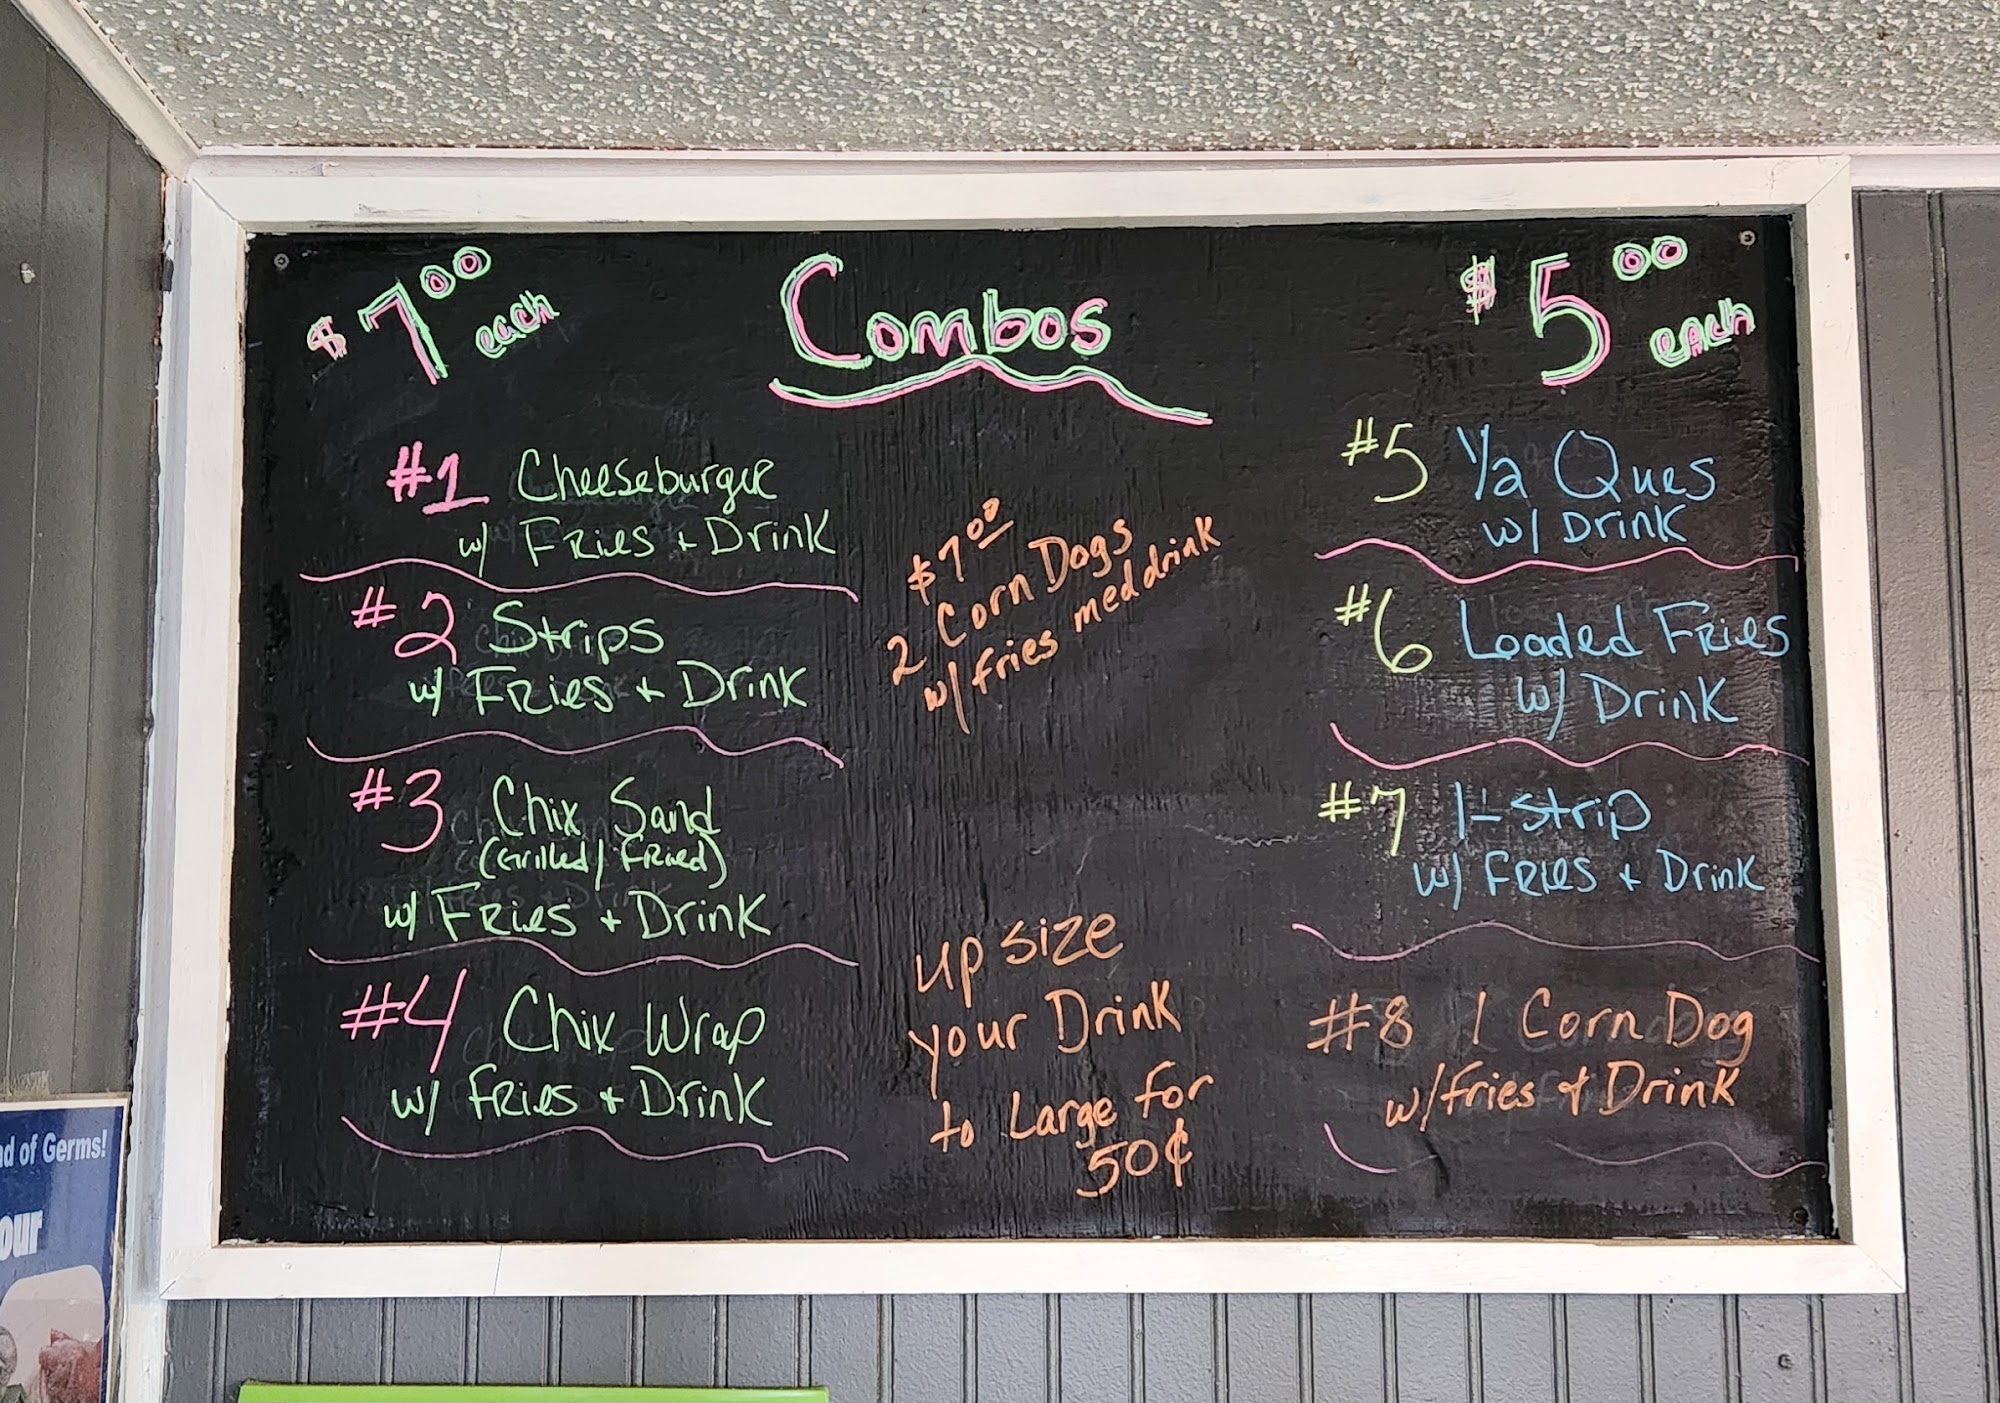 $7.00 each
Combos
$5.00 each
#1 Cheeseburger
w/ Fries + Drink
#2 Strips
w/ Fries + Drink
#3 Chix Sand
(Grilled/Fried)
w/ Fries + Drink
#4 Chix Wrap
w/ Fries + Drink
$7.00
2 Corn Dogs
w/ fries med drink
up size
your Drink
to Large for
50¢
#5 1/2 Ques
w/ Drink
#6 Loaded Fries
w/ Drink
#7 1-Strip
w/ Fries + Drink
#8 1 Corn Dog
w/ fries + Drink
of Germs!